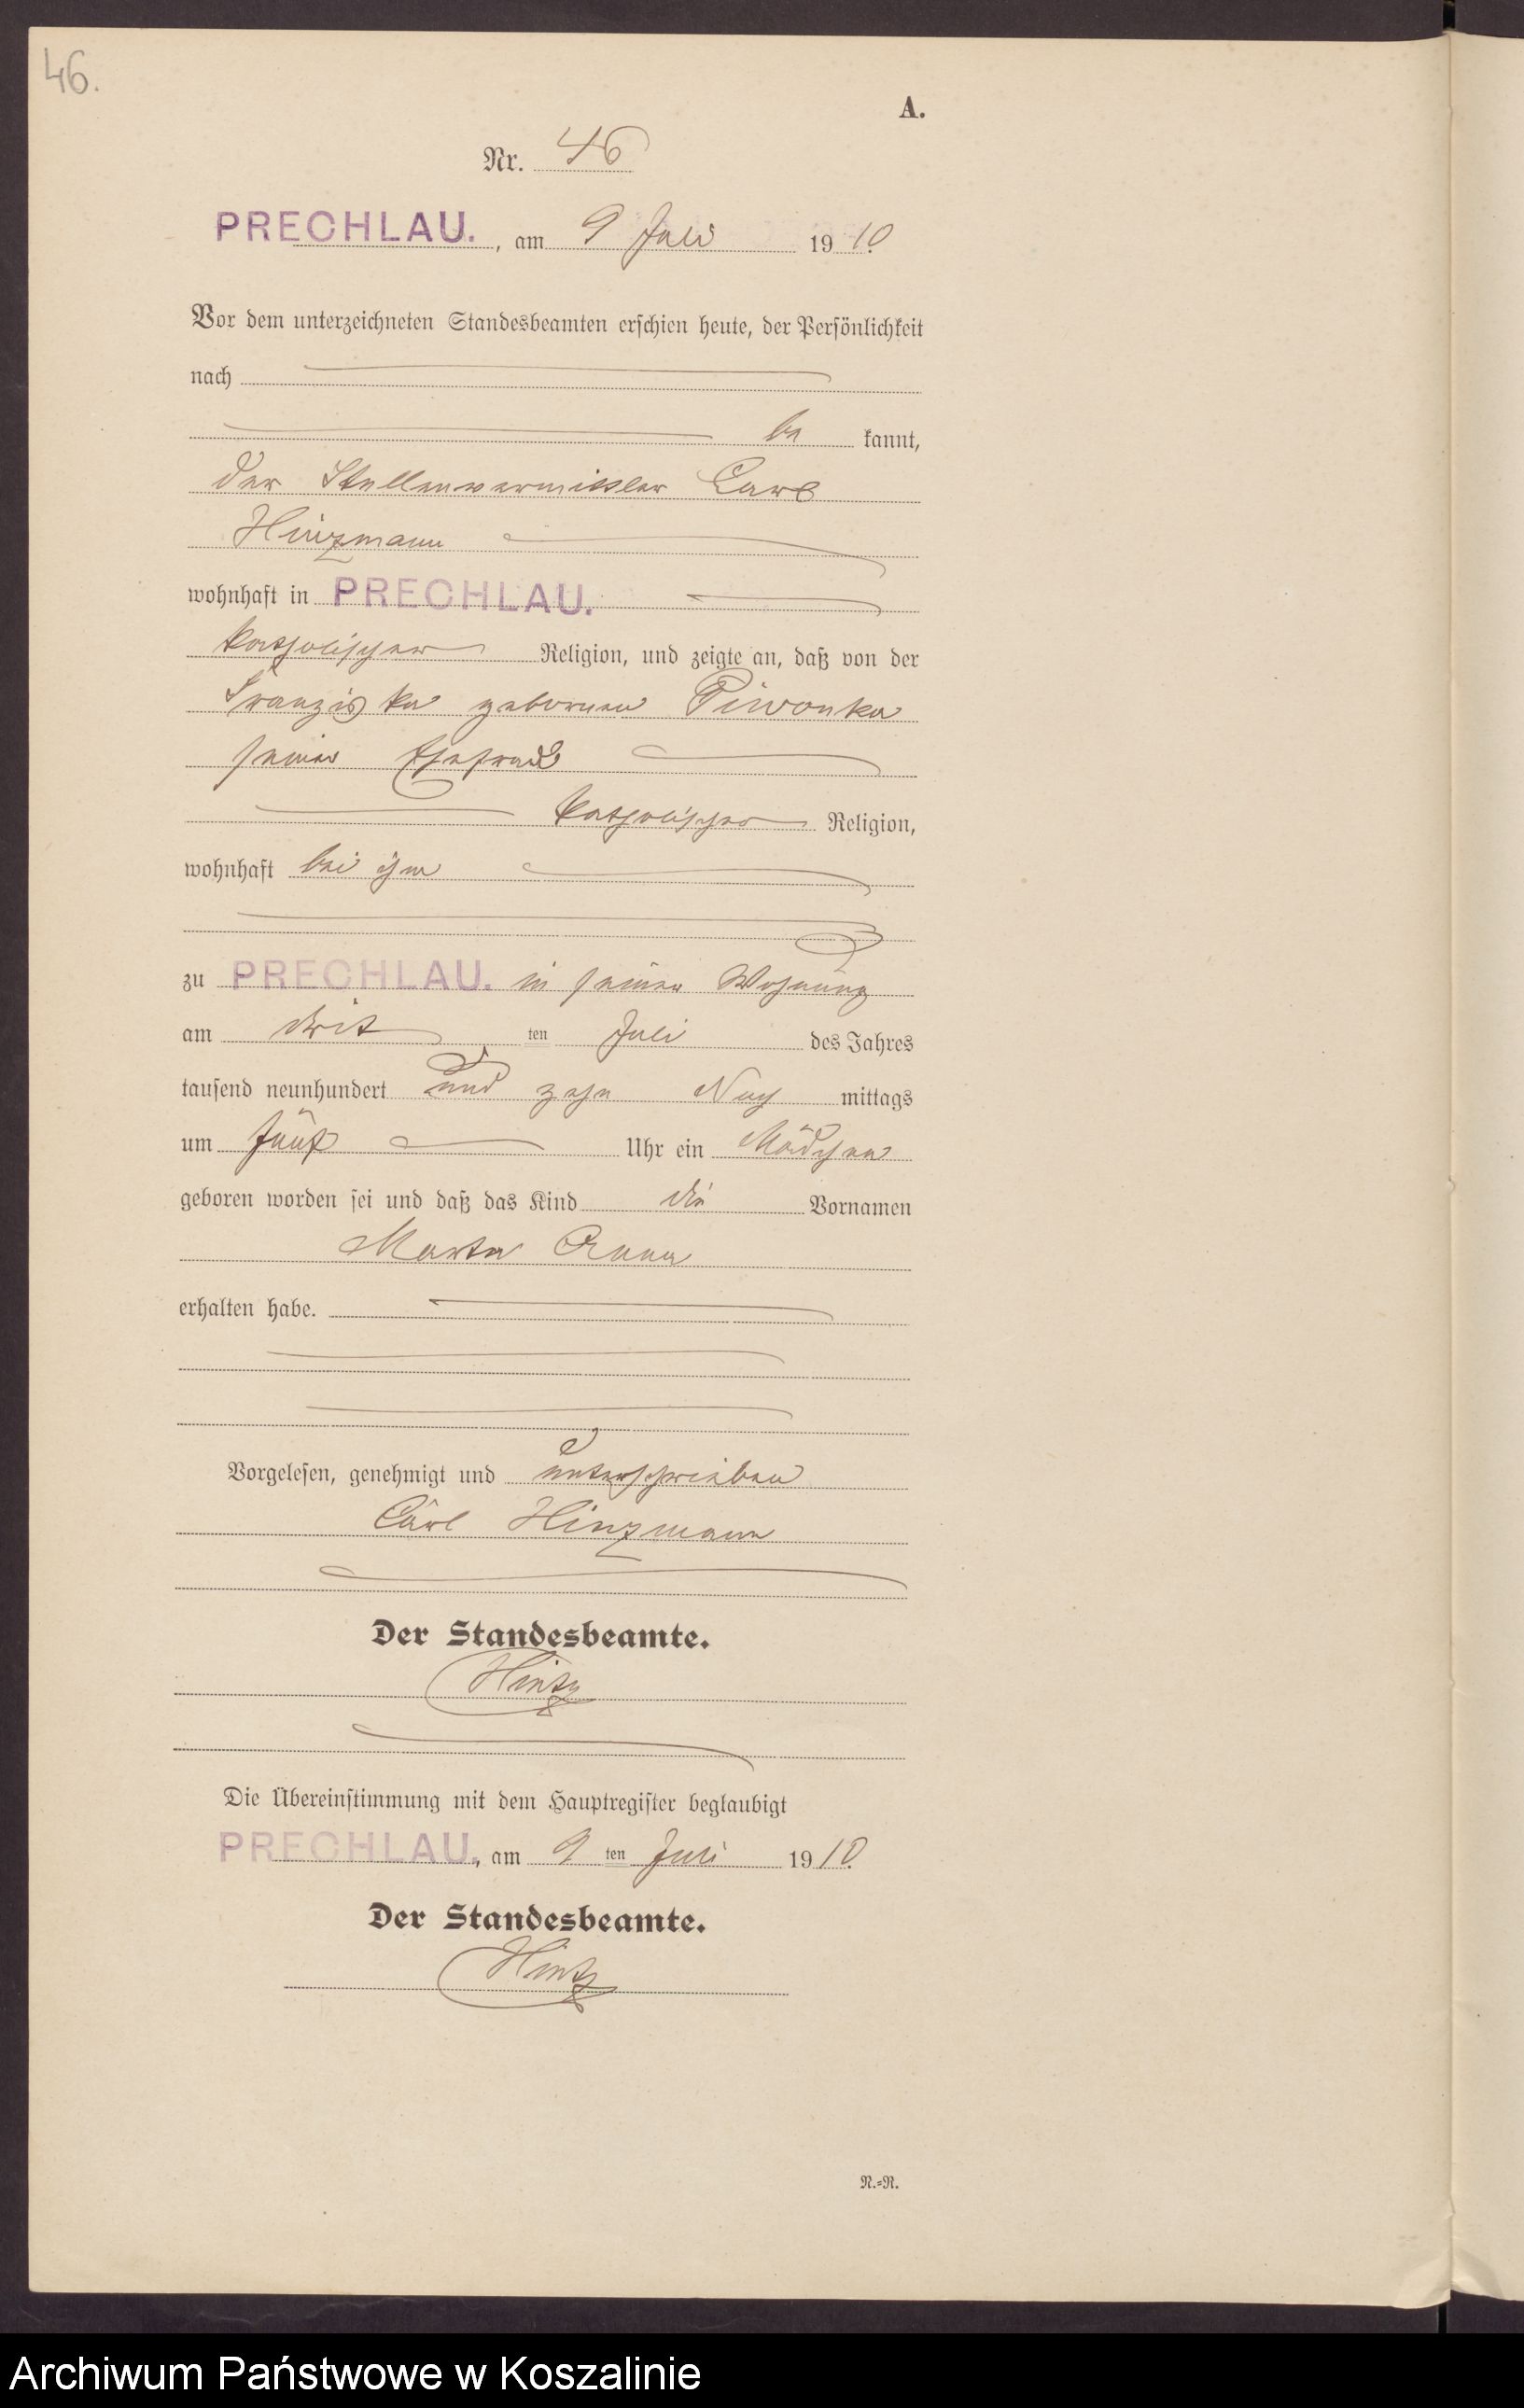 46.
A.
Nr. 46
PRECHLAU. , am 9 Juli 1910
Vor dem unterzeichneten Standesbeamten erschien heute, der Persönlichkeit
nach
be kannt,
der Stellenvermittler Carl
Hinzmann
wohnhaft in PRECHLAU.
katholischer Religion, und zeigte an, daß von der
Franziska geborenen Piwonka
seiner Ehefrau
katholischer Religion,
wohnhaft bei ihm
zu PRECHLAU. in seiner Wohnung
am dritten Juli des Jahres
tausend neunhundert und zehn Nachmittags
um fünf Uhr ein Mädchen
geboren worden sei und daß das Kind die Vornamen
Marta Anna
erhalten habe.
Vorgelesen, genehmigt und unterschrieben
Carl Hinzmann
Der Standesbeamte.
Hintz
Die Übereinstimmung mit dem Hauptregister beglaubigt
PRECHLAU., am 9 ten Juli 1910.
Der Standesbeamte.
Hintz
N.=R.
Archiwum Państwowe w Koszalinie